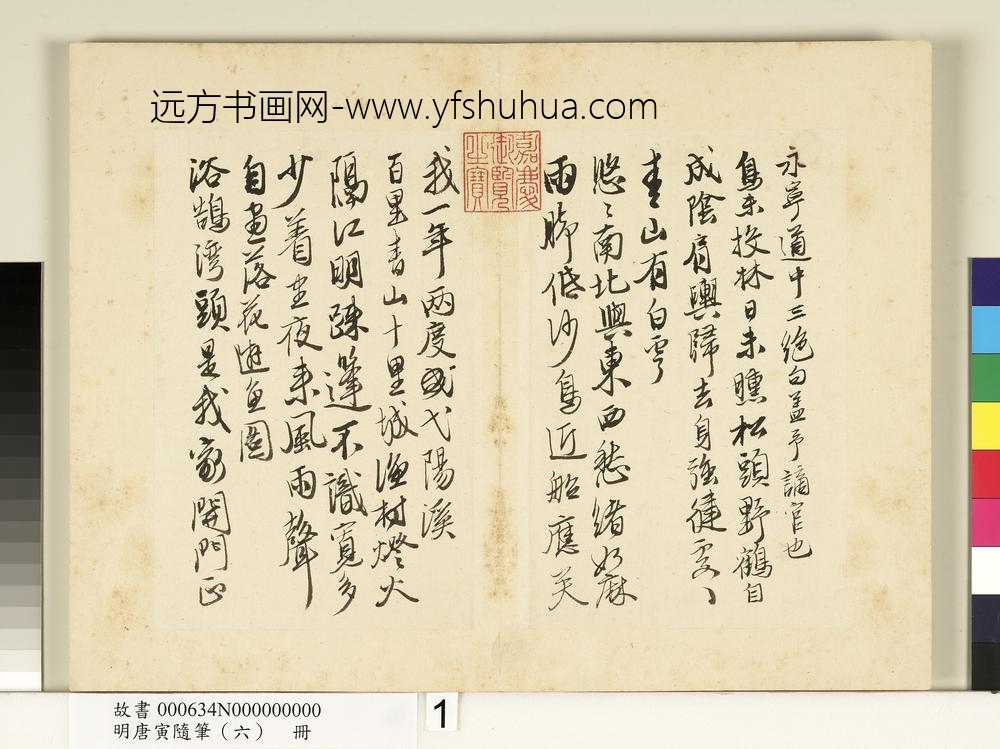 远方书画网-www.yfshuhua.com
永寧道中三絕句蓋予謫官也
烏未投林日未曛松頭野鶴自
成陰肩輿歸去身強健處〻
青山有白雲
悠〻南北與東西愁緒如麻
雨腳低沙鳥近船應笑
我一年兩度戈陽溪
百里青山十里城漁村燈火
隔江明疎篷不識寬多
少着盡夜來風雨聲
自畫落花遊魚圖
浴鵠灣頭是我家閉門正
嘉慶御覽之寶
故書 000634N000000000
明唐寅隨筆（六） 冊
1